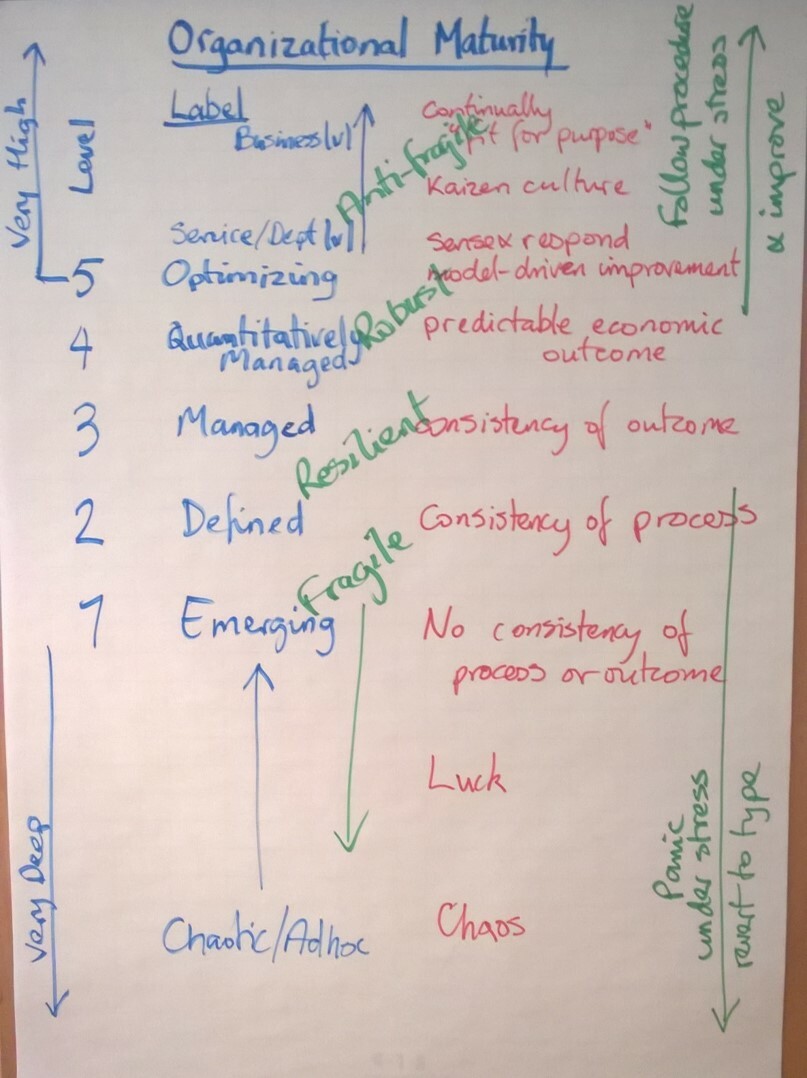 Organizational Maturity
Very High
Level
Label
Business lvl
Service/Dept lvl
5 Optimizing
4 Quantitatively
Managed
3 Managed
2 Defined
1 Emerging
Chaotic/Adhoc
Very Deep
Anti-fragile
Robust
Resilient
Fragile
Continually
"fit for purpose"
Kaizen culture
Sense & respond
model-driven improvement
predictable economic
outcome
consistency of outcome
Consistency of process
No consistency of
process or outcome
Luck
Chaos
Follow procedure
under stress
& improve
Panic
under stress
revert to type